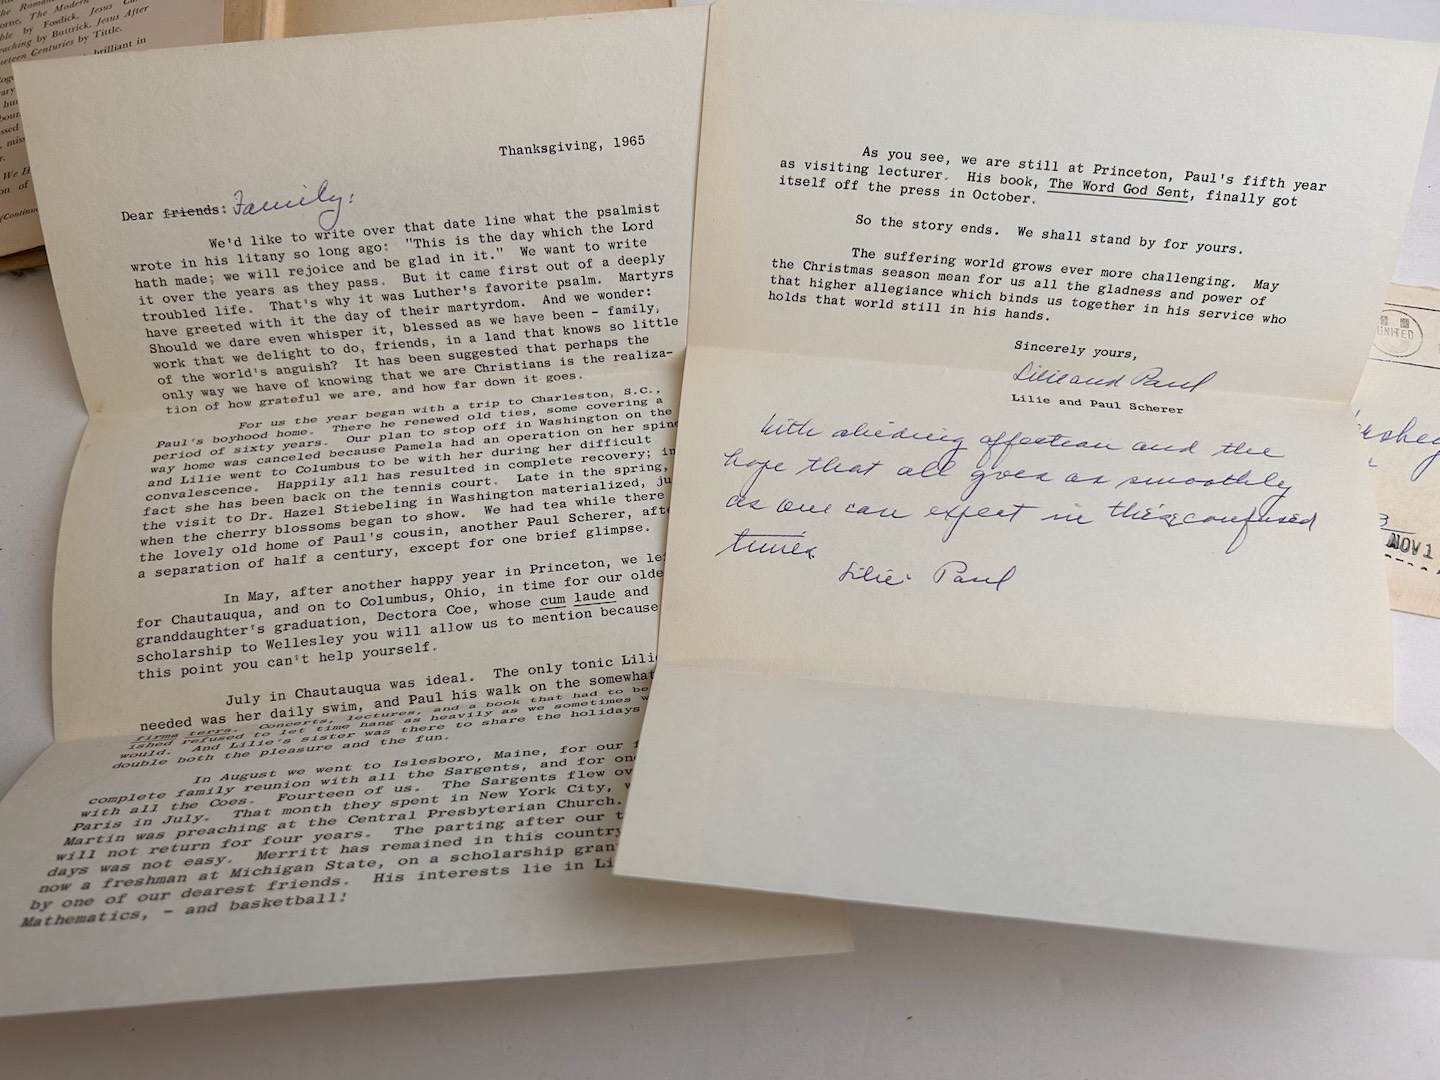 The Roman
orne, The Modern
ble by Fosdick, Jesus
eaching by Buttrick, Jesus After
neteen Centuries by Tittle.
brilliant in
We H
(Continu
Thanksgiving, 1965
Dear friends: Family:
We'd like to write over that date line what the psalmist
wrote in his litany so long ago: "This is the day which the Lord
hath made; we will rejoice and be glad in it." We want to write
it over the years as they pass. But it came first out of a deeply
troubled life. That's why it was Luther's favorite psalm. Martyrs
have greeted with it the day of their martyrdom. And we wonder:
Should we dare even whisper it, blessed as we have been - family,
work that we delight to do, friends, in a land that knows so little
of the world's anguish? It has been suggested that perhaps the
only way we have of knowing that we are Christians is the realiza-
tion of how grateful we are, and how far down it goes.
For us the year began with a trip to Charleston, S.C.,
Paul's boyhood home. There he renewed old ties, some covering a
period of sixty years. Our plan to stop off in Washington on the
way home was canceled because Pamela had an operation on her spine
and Lilie went to Columbus to be with her during her difficult
convalescence. Happily all has resulted in complete recovery; in
fact she has been back on the tennis court. Late in the spring,
the visit to Dr. Hazel Stiebeling in Washington materialized, ju
when the cherry blossoms began to show. We had tea while there
the lovely old home of Paul's cousin, another Paul Scherer, afte
a separation of half a century, except for one brief glimpse.
In May, after another happy year in Princeton, we lef
for Chautauqua, and on to Columbus, Ohio, in time for our olde
granddaughter's graduation, Dectora Coe, whose cum laude and
scholarship to Wellesley you will allow us to mention because
this point you can't help yourself.
July in Chautauqua was ideal. The only tonic Lilie
needed was her daily swim, and Paul his walk on the somewhat
firma terra. Concerts, lectures, and a book that had to be
ished refused to let time hang as heavily as we sometimes w
would. And Lilie's sister was there to share the holidays
double both the pleasure and the fun.
In August we went to Islesboro, Maine, for our f
complete family reunion with all the Sargents, and for one
with all the Coes. Fourteen of us. The Sargents flew ov
Paris in July. That month they spent in New York City, w
Martin was preaching at the Central Presbyterian Church.
will not return for four years. The parting after our t
days was not easy. Merritt has remained in this country
now a freshman at Michigan State, on a scholarship gran
by one of our dearest friends. His interests lie in Li
Mathematics, - and basketball!
As you see, we are still at Princeton, Paul's fifth year
as visiting lecturer. His book, The Word God Sent, finally got
itself off the press in October.
So the story ends. We shall stand by for yours.
The suffering world grows ever more challenging. May
the Christmas season mean for us all the gladness and power of
that higher allegiance which binds us together in his service who
holds that world still in his hands.
Sincerely yours,
Lilie and Paul
Lilie and Paul Scherer
With abiding affection and the
hope that all goes as smoothly
as one can expect in these confused
times.
Lilie: Paul
UNITED
ershey
3
NOV 1